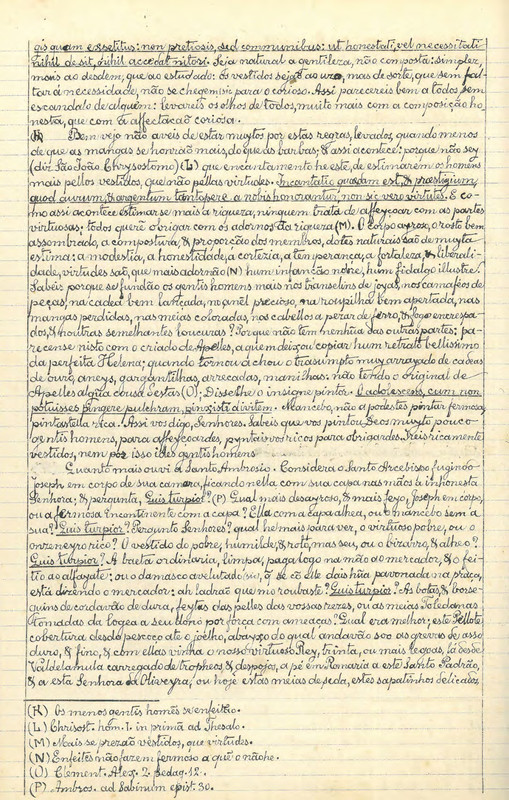 gis quam exsetitus: non pretiosis, sed communibus: ut honestati, vel necessitati
nihil desit, nihil accedat nitori. Seja natural a gentileza, não composta: simplez,
mais ao desdem, que ao estudado: os vestidos sejão ao uzo, mas de sorte, que sem fal-
tar á necessidade, não se chegem para o corioso. Assi parecereis bem a todos, sem
escandalo de alguem: levareis os olhos de todos, muito mais com a composição ho-
nesta, que com a affectacão coriosa.
(K) Bem vejo não aveis de estar muytos por estas regras, levados, quando menos
de que as mangas se honrão mais, do que as barbas; & assi acontece: porque não sey
(diz São João Chrysostomo) (L) que encantamento he este, de estimarem os homens
mais pellos vestidos, que não pellas virtudes. Incantatio quædam est, & præstigium,
quod aurum, & argentum tantopere a nobis honorantur, non sic vero virtutes. E co-
mo assi acontece estimarse mais a riqueza, ninguem trata de affeyçoar com as partes
virtuosas: todos querẽ obrigar com os adornos da riqueza (M). O corpo ayrozo, o rosto bem
assombrado, a compostura, & proporção dos membros, dotes naturais são de muyta
estima: a modestia, a honestidade, a cortezia, a temperança, a fortaleza, & liberali-
dade, virtudes são, que mais adornão (N) hum infanção nobre, hum fidalgo illustre.
Sabeis porque se fundão os gentis homens mais nos transelins de joyas, nos camafeos de
peças, na cadea bem lançada, no anel precioso, na roupilha bem apertada, nas
mangas perdidas, nas meias coloradas, nos cabellos a pezar de ferro, & fogo encrespa-
dos, & noutras semelhantes loucuras? Porque não tem nenhũa das outras partes: pa-
recense nisto com o criado de Apelles, a quem deixou copiar hum retrato bellissimo
da perfeita Helena; quando tornou achou o trasumpto muy arrayado de cadeas
de ouro, aneys, gargantilhas, arrecadas, manilhas: não tendo o original de
Apelles algũa cousa destas (O). Disselhe o insigne pintor. O adolescens, cum non
potuisses pingere pulchram, pinxisti divitem. Mancebo, não a podestes pintar fermosa,
pintastella rica. Assi vos digo, Senhores. Sabeis que vos pintou Deos muyto pouco
gentis homens, para affeyçoardes, pyntaisvos ricos para obrigardes. Ireis ricamente
vestidos, nem por isso ides gentis homens
Quanto mais ouvi a Santo Ambrosio. Considera o Santo Arcebispo fugindo
Joseph em corpo de sua camara, ficando nella com sua capa nas mãos a inhonesta
Senhora; & pergunta, Quis turpior? (P) Qual mais desayroso, & mais feyo, Joseph em corpo,
ou a fermosa incontinente com a capa? Ella com a capa alhea, ou o mancebo sem a
sua? Quis turpior? Pergunto Senhores? qual he mais para ver, o virtuoso pobre, ou o
onzeneyro rico? O vestido do pobre, humilde, & roto, mas seu, ou o bizarro, & alheo?
Quis turpior? A baeta ordinaria, limpa, paga logo na mão ao mercador, & o fei-
tio ao alfayate: ou o damasco avelutado (sic), q̃ se co elle dais hũa pavonada na praça,
está dizendo o mercador: ah ladrão que mo roubaste? Quis turpior? As botas, & borse-
quins de cordavão de dura, feytas das pelles das vossas rezes, ou as meias Toledanas
tomadas da logea a seu dono por força com ameaças? Qual era melhor; este Pellote
cobertura desdo pescoço atè o joelho, abayxo do qual andavão soo as grevas de asso
duro, & fino, & com ellas vinha o nosso virtuoso Rey, trinta, ou mais legoas, la desde
Valdelamula carregado de tropheos, & despojos, a pé em Romaria a este Santo Padrão,
& a esta Senhora da Oliveyra, ou hoje estas meias de seda, estes sapatinhos delicados,
(K) Os menos gentis homẽs se enfeitão.
(L) Chrisost. hom. I. in primã ad Thesalo.
(M) Mais se prezão vestidos, que virtudes.
(N) Enfeites não fazem fermoso a quẽ o nãohe.
(O) Clement. Alex. 2. Pedag. 12.
(P) Ambros. ad Sabinum epist. 30.